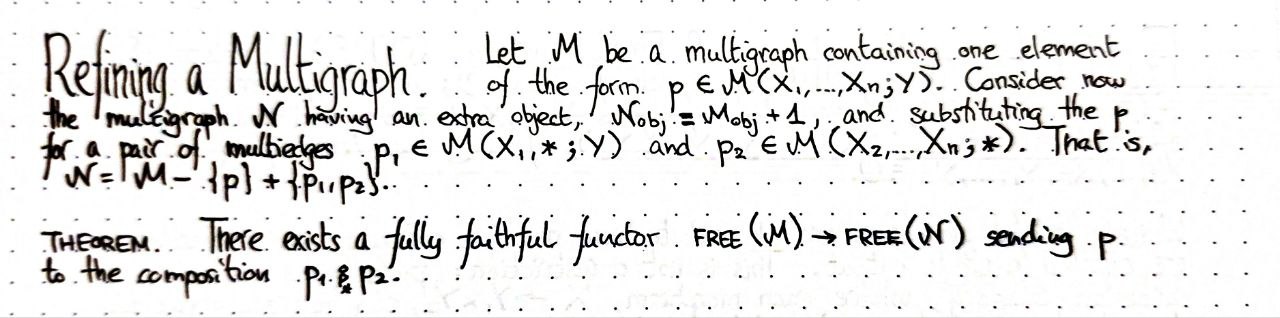 Refining a Multigraph. Let M be a multigraph containing one element
of the form p ∈ M(X₁,...,Xn;Y). Consider now
the multigraph N having an extra object, Nobj = Mobj + 1, and substituting the p
for a pair of multiedges p₁ ∈ M(X₁,*;Y) and p₂ ∈ M(X₂,...,Xn;*). That is,
N = M - {p} + {p₁,p₂}.
THEOREM. There exists a fully faithful functor FREE(M) → FREE(N) sending p
to the composition p₁ ⨟* p₂.